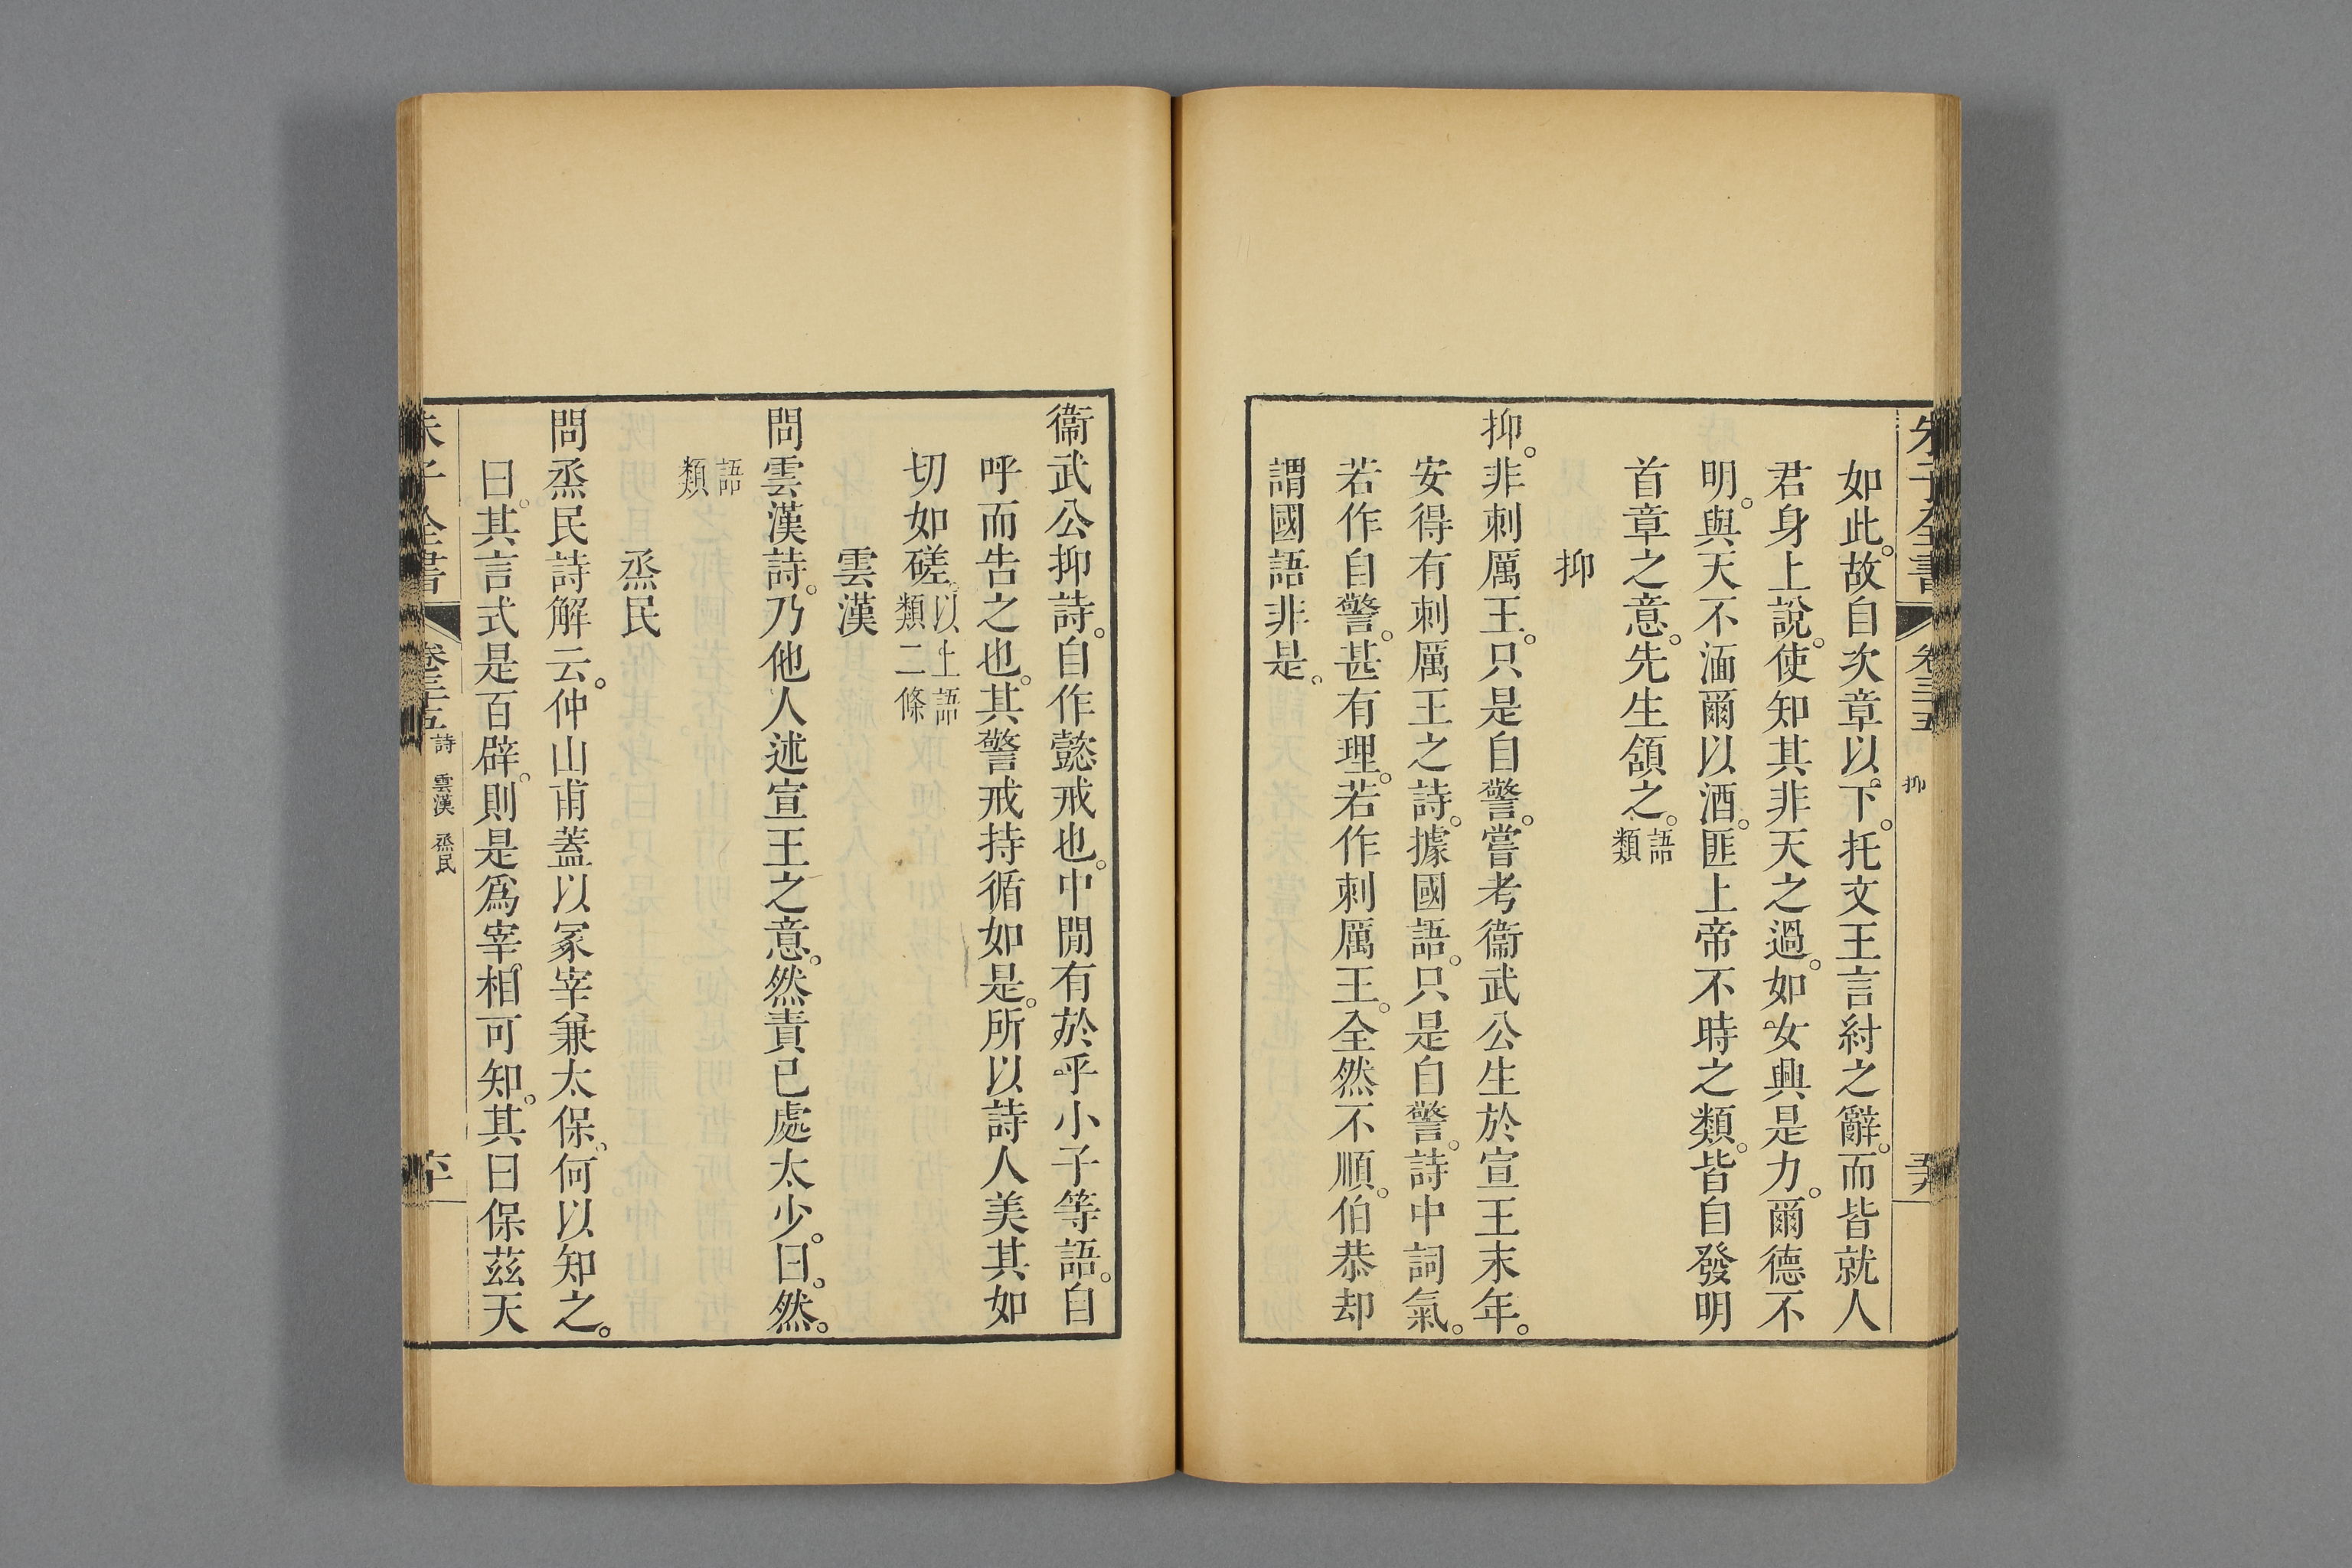 朱子全書 卷三十五 抑
如此。故自次章以下。托文王言紂之辭。而皆就人
君身上說。使知其非天之過。如女興是力。爾德不
明。與天不湎爾以酒。匪上帝不時之類。皆自發明
首章之意。先生頷之。語類
抑
抑。非刺厲王。只是自警。嘗考衞武公生於宣王末年。
安得有刺厲王之詩。據國語。只是自警。詩中詞氣。
若作自警。甚有理。若作刺厲王。全然不順。伯恭却
謂國語非是。
衞武公抑詩。自作懿戒也。中閒有於乎小子等語。自
呼而告之也。其警戒持循如是。所以詩人美其如
切如磋。以上語類二條
雲漢
問雲漢詩。乃他人述宣王之意。然責已處太少。曰。然。
語類
烝民
問烝民詩解云。仲山甫蓋以冢宰兼太保。何以知之。
曰。其言式是百辟。則是爲宰相可知。其曰保茲天
朱子全書 卷三十五 詩 雲漢 烝民